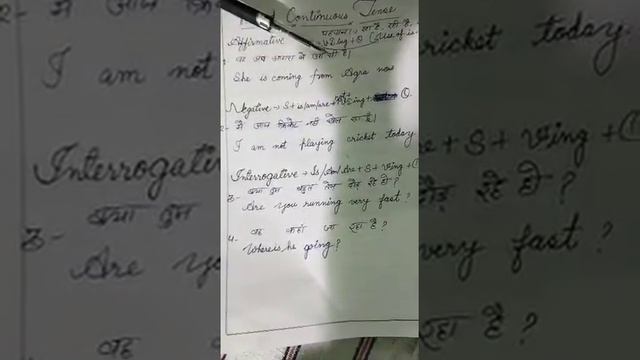 Continuous Tense
पहचान:- रहा है, रही है,
Affirmative
V+ing+O (Use of is
वह अब आगरा से आ रही है।
She is coming from Agra now
Negative → S+is/am/are+not+Ving+ O.
2- मैं आज क्रिकेट नहीं खेल रहा हूँ।
I am not playing cricket today.
Interrogative + Is/Am/Are + S + Ving + O
3- क्या तुम बहुत तेज दौड़ रहे हो?
Are you running very fast?
4. वह कहां जा रहा है?
Where is he going?